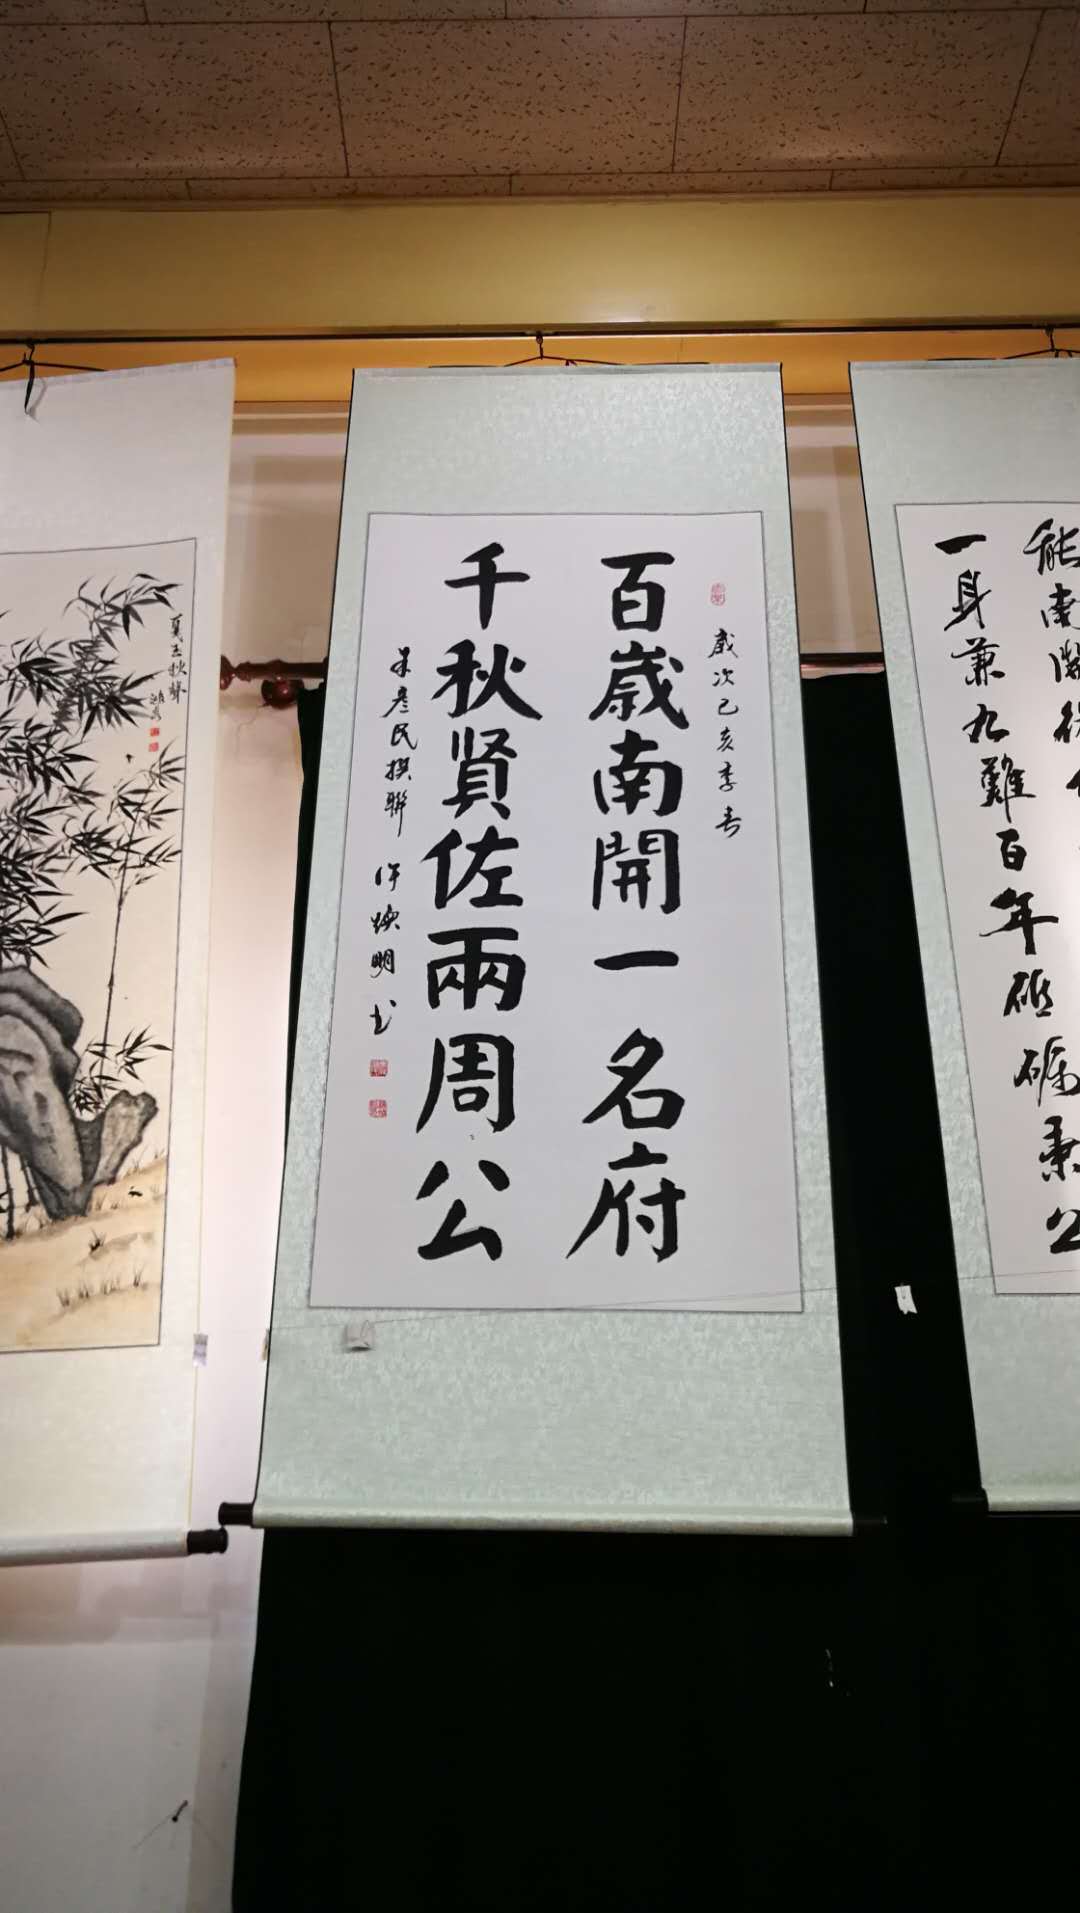 歲次己亥季春
百歲南開一名府
千秋賢佐兩周公
朱彥民撰聯 許煥明书
能南開
一身兼九難百年砥礪秉公
戛玉秋聲